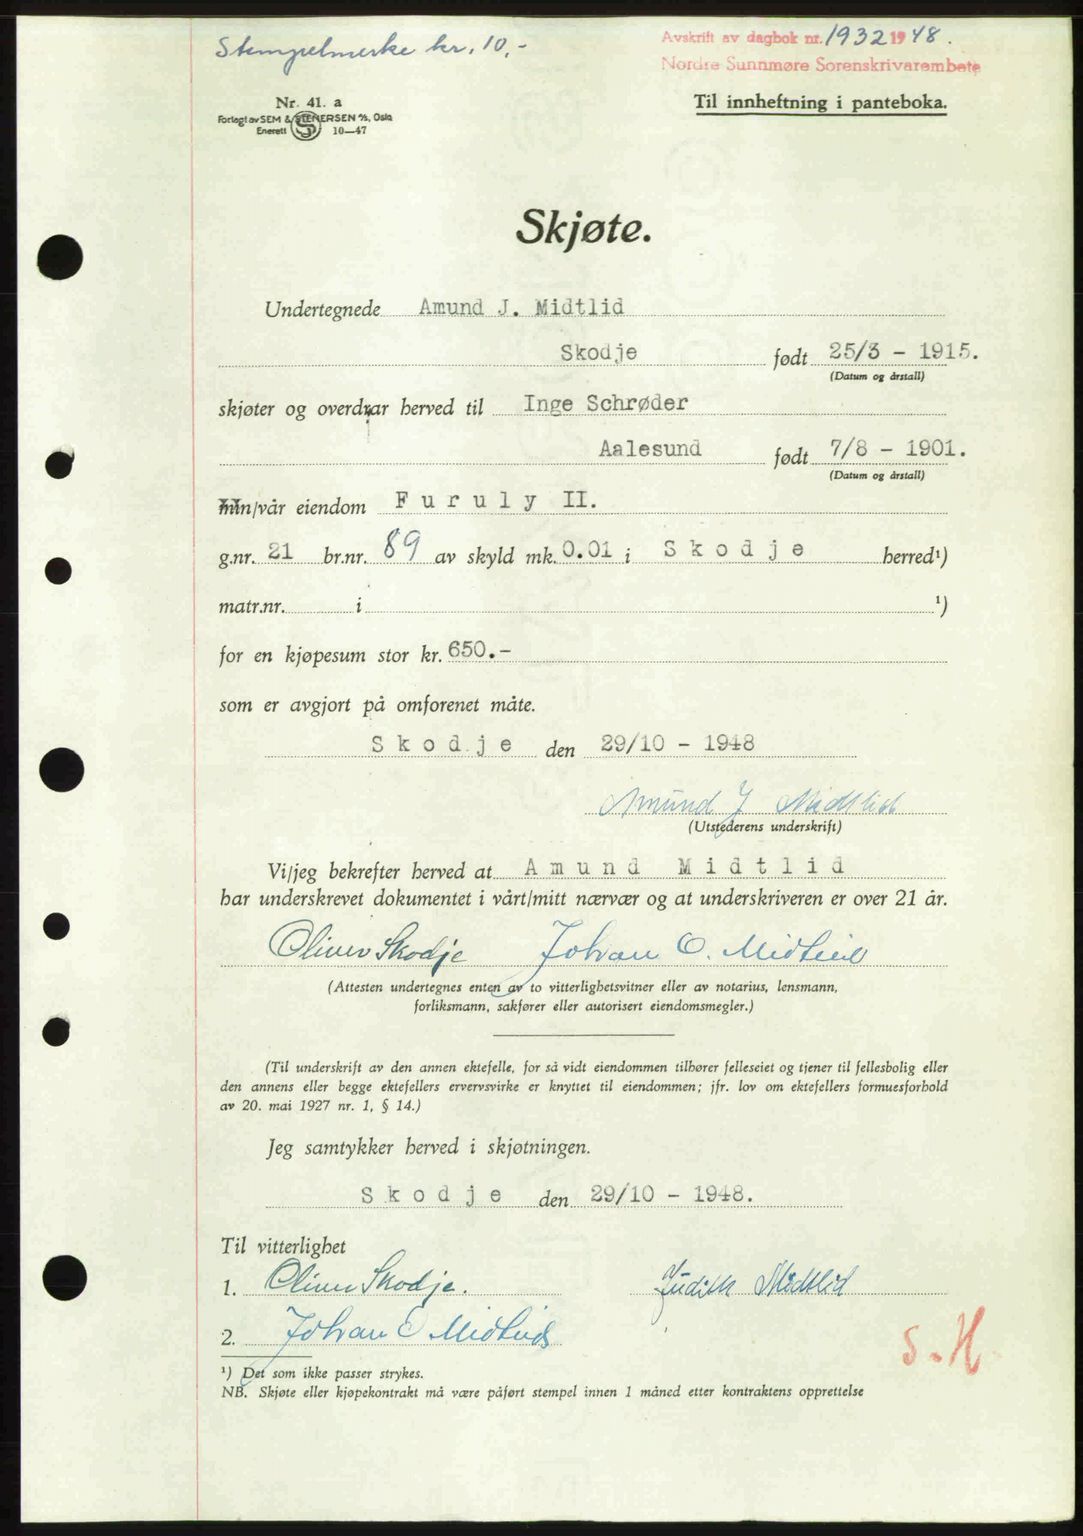 Stempelmerke kr. 10,-
Avskrift av dagbok nr. 1932 1948.
Nordre Sunnmøre Sorenskrivarembete
Nr. 41. a
Forlagt av SEM & STENERSEN A/S, Oslo
Enerett S 10—47
Til innheftning i panteboka.
Skjøte.
Undertegnede Amund J. Midtlid
Skodje født 25/3 - 1915.
(Datum og årstall)
skjøter og overdrar herved til Inge Schrøder
Aalesund født 7/8 - 1901.
(Datum og årstall)
min/vår eiendom Furuly II.
g.nr. 21 br.nr. 89 av skyld mk. 0.01 i Skodje herred¹)
matr.nr. i ¹)
for en kjøpesum stor kr. 650.-
som er avgjort på omforenet måte.
Skodje den 29/10 - 1948
Amund J Midtlid
(Utstederens underskrift)
Vi/jeg bekrefter herved at Amund Midtlid
har underskrevet dokumentet i vårt/mitt nærvær og at underskriveren er over 21 år.
Oliver Skodje Johan O. Midtlid
(Attesten undertegnes enten av to vitterlighetsvitner eller av notarius, lensmann,
forliksmann, sakfører eller autorisert eiendomsmegler.)
(Til underskrift av den annen ektefelle, for så vidt eiendommen tilhører felleseiet og tjener til fellesbolig eller
den annens eller begge ektefellers ervervsvirke er knyttet til eiendommen; jfr. lov om ektefellers formuesforhold
av 20. mai 1927 nr. 1, § 14.)
Jeg samtykker herved i skjøtningen.
Skodje den 29/10 - 1948.
Til vitterlighet
1. Oliver Skodje. Judith Midtlid
2. Johan O Midtlid
S.H.
¹) Det som ikke passer strykes.
NB. Skjøte eller kjøpekontrakt må være påført stempel innen 1 måned etter kontraktens opprettelse